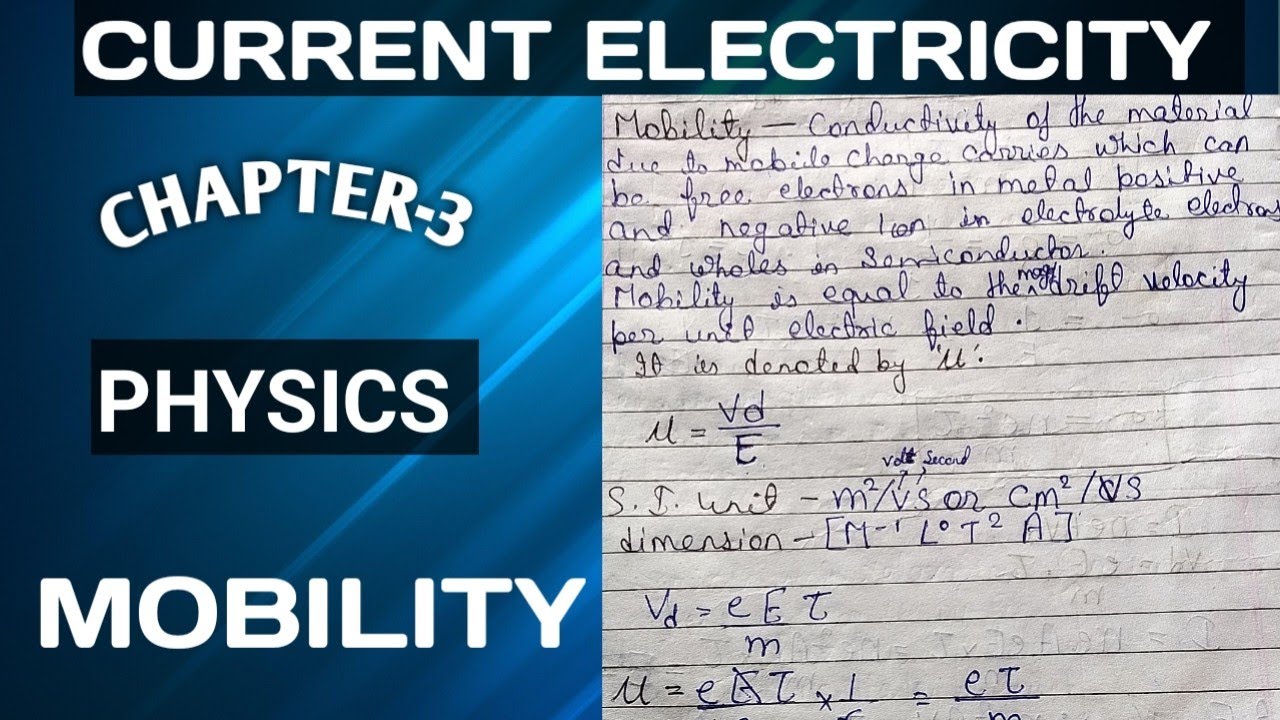 CURRENT ELECTRICITY
CHAPTER-3
PHYSICS
MOBILITY
Mobility — Conductivity of the material
due to mobile charge carries which can
be free electrons in metal positive
and negative Ion in electrolyte electron
and wholes in Semiconductor.
Mobility is equal to the mag of drift velocity
per unit electric field.
It is denoted by 'μ'.
μ = Vd/E
volt second
S.I. Unit - m²/VS or cm²/VS
dimension - [M⁻¹ L⁰ T² A]
Vd = eEτ/m
μ = eEτ × 1 = eτ